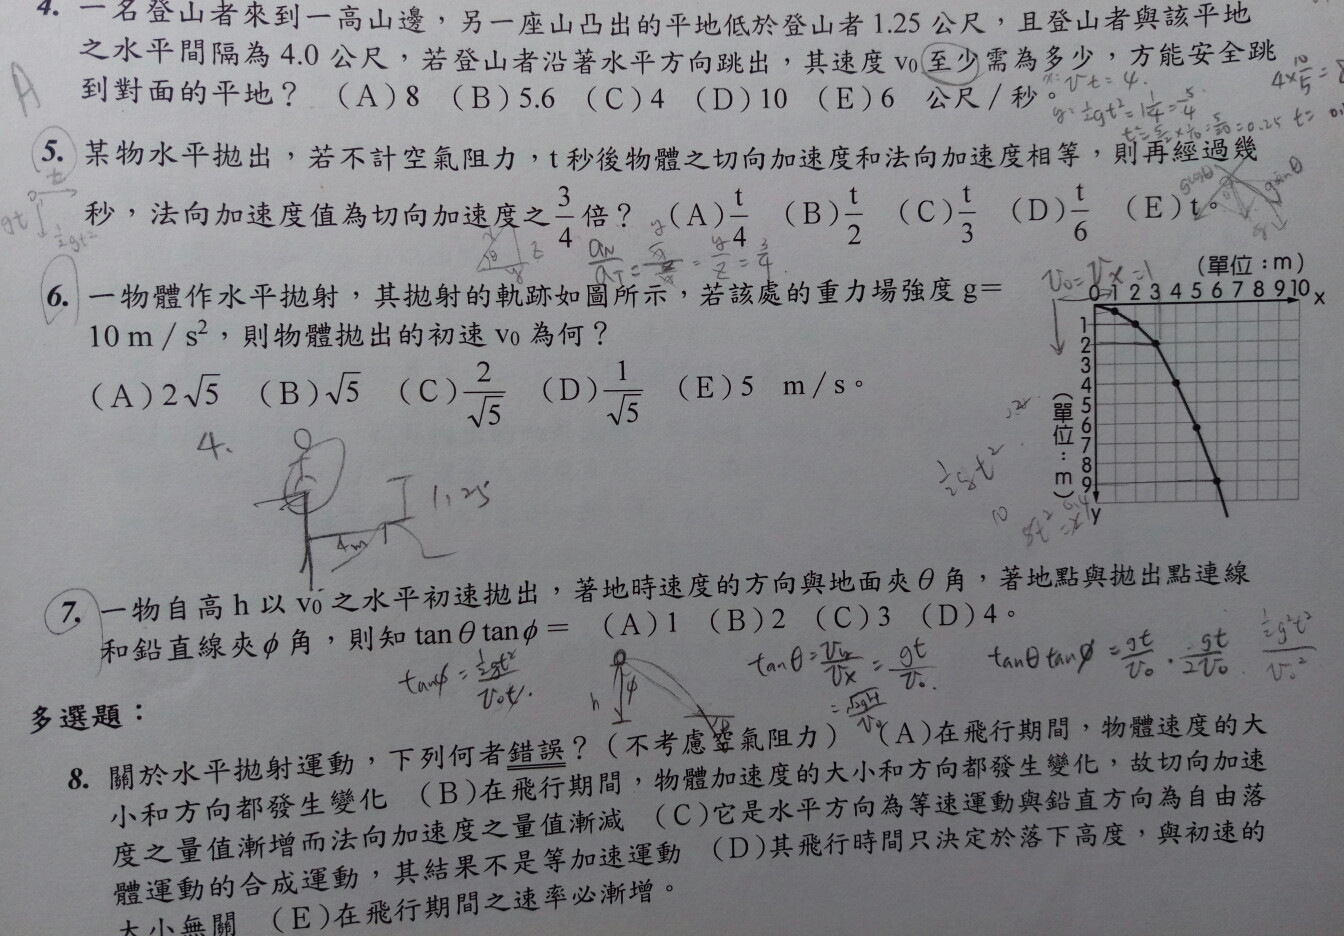 4. 一名登山者來到一高山邊，另一座山凸出的平地低於登山者 1.25 公尺，且登山者與該平地
之水平間隔為 4.0 公尺，若登山者沿著水平方向跳出，其速度 v₀ 至少需為多少，方能安全跳
到對面的平地？ (A) 8 (B) 5.6 (C) 4 (D) 10 (E) 6 公尺／秒。
A
x: vt = 4.
y = ½gt² = 1¼ = 5/4
5. 某物水平拋出，若不計空氣阻力，t 秒後物體之切向加速度和法向加速度相等，則再經過幾
秒，法向加速度值為切向加速度之 3/4 倍？ (A) t/4 (B) t/2 (C) t/3 (D) t/6 (E) t。
gt
½gt²
6. 一物體作水平拋射，其拋射的軌跡如圖所示，若該處的重力場強度 g＝
10 m / s²，則物體拋出的初速 v₀ 為何？
(A) 2√5 (B) √5 (C) 2/√5 (D) 1/√5 (E) 5 m / s。
(單位：m)
0 1 2 3 4 5 6 7 8 9 10 x
1
2
3
4
5
6
7
8
9
(單位：m)
y
4.
1.25
4m
7. 一物自高 h 以 v₀ 之水平初速拋出，著地時速度的方向與地面夾 θ 角，著地點與拋出點連線
和鉛直線夾 φ 角，則知 tan θ tan φ＝ (A) 1 (B) 2 (C) 3 (D) 4。
tanφ = ½gt² / v₀t.
h
φ
tanθ = vy/vx = gt/v₀.
tanθ tanφ = gt/v₀ · gt/2v₀
多選題：
8. 關於水平拋射運動，下列何者錯誤？（不考慮空氣阻力） (A)在飛行期間，物體速度的大
小和方向都發生變化 (B)在飛行期間，物體加速度的大小和方向都發生變化，故切向加速
度之量值漸增而法向加速度之量值漸減 (C)它是水平方向為等速運動與鉛直方向為自由落
體運動的合成運動，其結果不是等加速運動 (D)其飛行時間只決定於落下高度，與初速的
大小無關 (E)在飛行期間之速率必漸增。